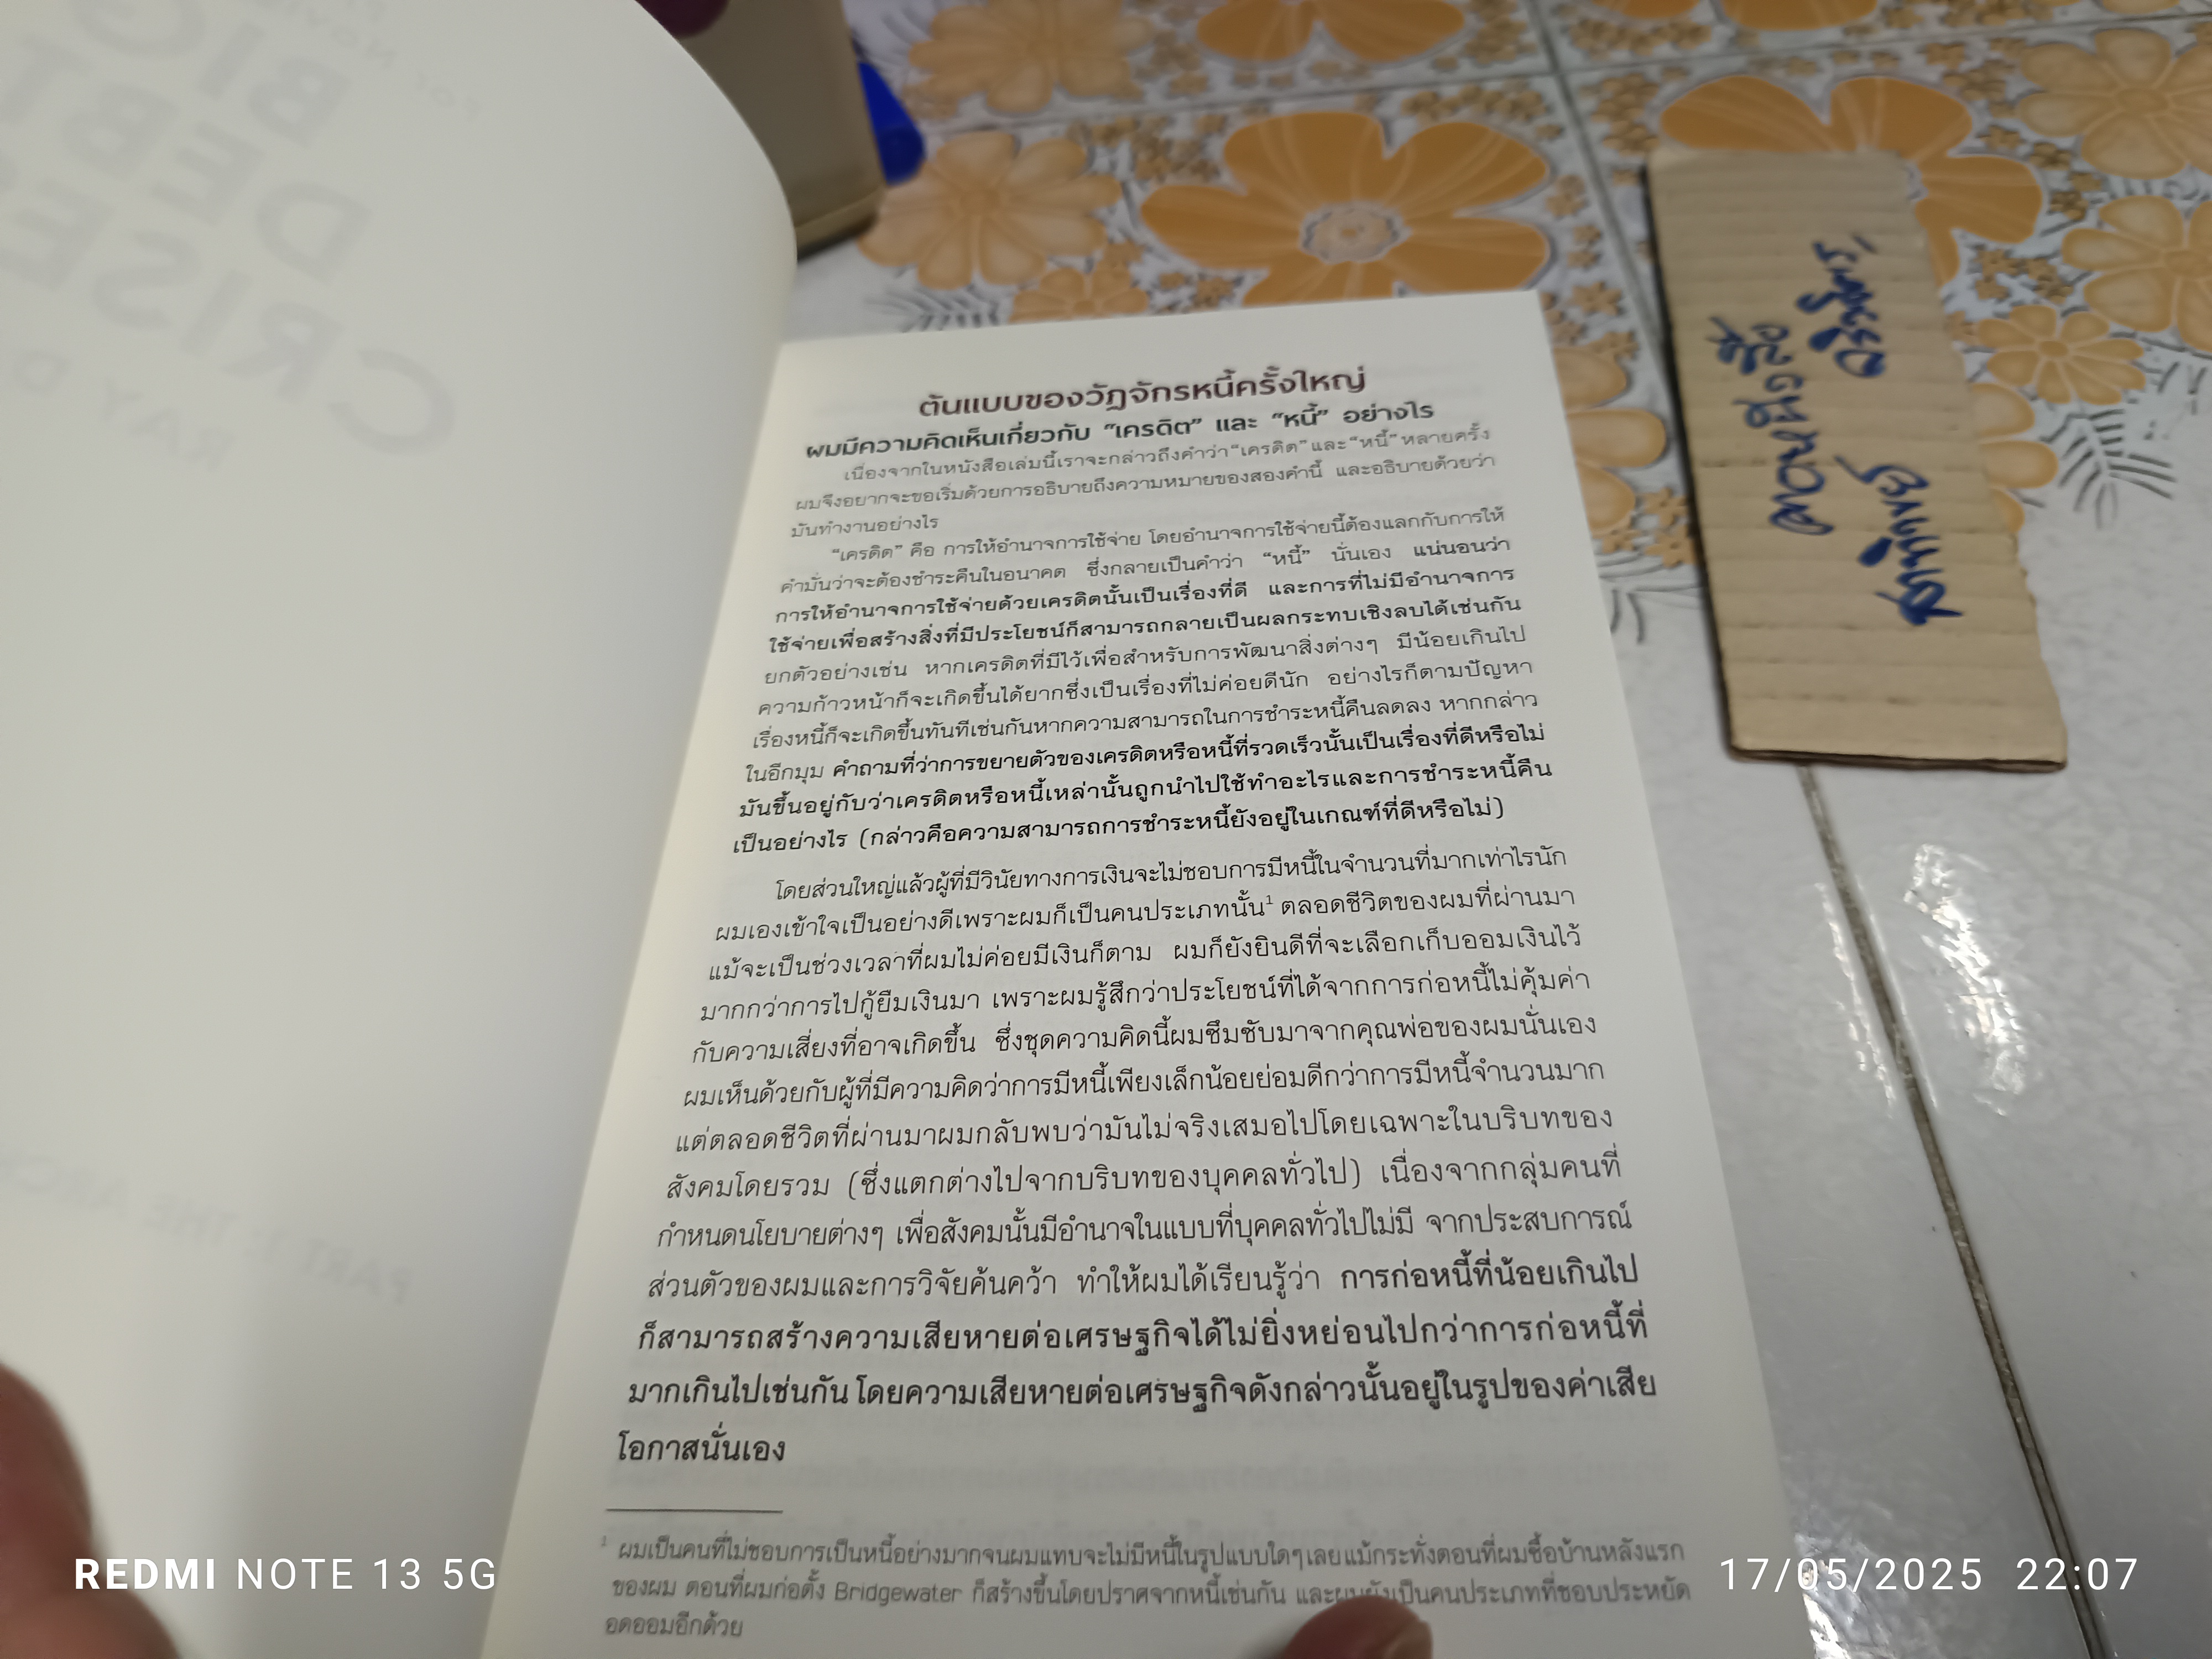 BIG
DEBT
CRISE
RAY D
PART
THE ARC
ต้นแบบของวัฏจักรหนี้ครั้งใหญ่
ผมมีความคิดเห็นเกี่ยวกับ “เครดิต” และ “หนี้” อย่างไร
เนื่องจากในหนังสือเล่มนี้เราจะกล่าวถึงคำว่า “เครดิต” และ “หนี้” หลายครั้ง
ผมจึงอยากจะขอเริ่มด้วยการอธิบายถึงความหมายของสองคำนี้ และอธิบายด้วยว่า
มันทำงานอย่างไร
“เครดิต” คือ การให้อำนาจการใช้จ่าย โดยอำนาจการใช้จ่ายนี้ต้องแลกกับการให้
คำมั่นว่าจะต้องชำระคืนในอนาคต ซึ่งกลายเป็นคำว่า “หนี้” นั่นเอง แน่นอนว่า
การให้อำนาจการใช้จ่ายด้วยเครดิตนั้นเป็นเรื่องที่ดี และการที่ไม่มีอำนาจการ
ใช้จ่ายเพื่อสร้างสิ่งที่มีประโยชน์ก็สามารถกลายเป็นผลกระทบเชิงลบได้เช่นกัน
ยกตัวอย่างเช่น หากเครดิตที่มีไว้เพื่อสำหรับการพัฒนาสิ่งต่างๆ มีน้อยเกินไป
ความก้าวหน้าก็จะเกิดขึ้นได้ยากซึ่งเป็นเรื่องที่ไม่ค่อยดีนัก อย่างไรก็ตามปัญหา
เรื่องหนี้ก็จะเกิดขึ้นทันทีเช่นกันหากความสามารถในการชำระหนี้คืนลดลง หากกล่าว
ในอีกมุม คำถามที่ว่าการขยายตัวของเครดิตหรือหนี้ที่รวดเร็วนั้นเป็นเรื่องที่ดีหรือไม่
มันขึ้นอยู่กับว่าเครดิตหรือหนี้เหล่านั้นถูกนำไปใช้ทำอะไรและการชำระหนี้คืน
เป็นอย่างไร (กล่าวคือความสามารถการชำระหนี้ยังอยู่ในเกณฑ์ที่ดีหรือไม่)
โดยส่วนใหญ่แล้วผู้ที่มีวินัยทางการเงินจะไม่ชอบการมีหนี้ในจำนวนที่มากเท่าไรนัก
ผมเองเข้าใจเป็นอย่างดีเพราะผมก็เป็นคนประเภทนั้น¹ ตลอดชีวิตของผมที่ผ่านมา
แม้จะเป็นช่วงเวลาที่ผมไม่ค่อยมีเงินก็ตาม ผมก็ยังยินดีที่จะเลือกเก็บออมเงินไว้
มากกว่าการไปกู้ยืมเงินมา เพราะผมรู้สึกว่าประโยชน์ที่ได้จากการก่อหนี้ไม่คุ้มค่า
กับความเสี่ยงที่อาจเกิดขึ้น ซึ่งชุดความคิดนี้ผมซึมซับมาจากคุณพ่อของผมนั่นเอง
ผมเห็นด้วยกับผู้ที่มีความคิดว่าการมีหนี้เพียงเล็กน้อยย่อมดีกว่าการมีหนี้จำนวนมาก
แต่ตลอดชีวิตที่ผ่านมาผมกลับพบว่ามันไม่จริงเสมอไปโดยเฉพาะในบริบทของ
สังคมโดยรวม (ซึ่งแตกต่างไปจากบริบทของบุคคลทั่วไป) เนื่องจากกลุ่มคนที่
กำหนดนโยบายต่างๆ เพื่อสังคมนั้นมีอำนาจในแบบที่บุคคลทั่วไปไม่มี จากประสบการณ์
ส่วนตัวของผมและการวิจัยค้นคว้า ทำให้ผมได้เรียนรู้ว่า การก่อหนี้ที่น้อยเกินไป
ก็สามารถสร้างความเสียหายต่อเศรษฐกิจได้ไม่ยิ่งหย่อนไปกว่าการก่อหนี้ที่
มากเกินไปเช่นกัน โดยความเสียหายต่อเศรษฐกิจดังกล่าวนั้นอยู่ในรูปของค่าเสีย
โอกาสนั่นเอง
¹ ผมเป็นคนที่ไม่ชอบการเป็นหนี้อย่างมากจนผมแทบจะไม่มีหนี้ในรูปแบบใดๆเลย แม้กระทั่งตอนที่ผมซื้อบ้านหลังแรก
ของผม ตอนที่ผมก่อตั้ง Bridgewater ก็สร้างขึ้นโดยปราศจากหนี้เช่นกัน และผมยังเป็นคนประเภทที่ชอบประหยัด
อดออมอีกด้วย
REDMI NOTE 13 5G
17/05/2025 22:07